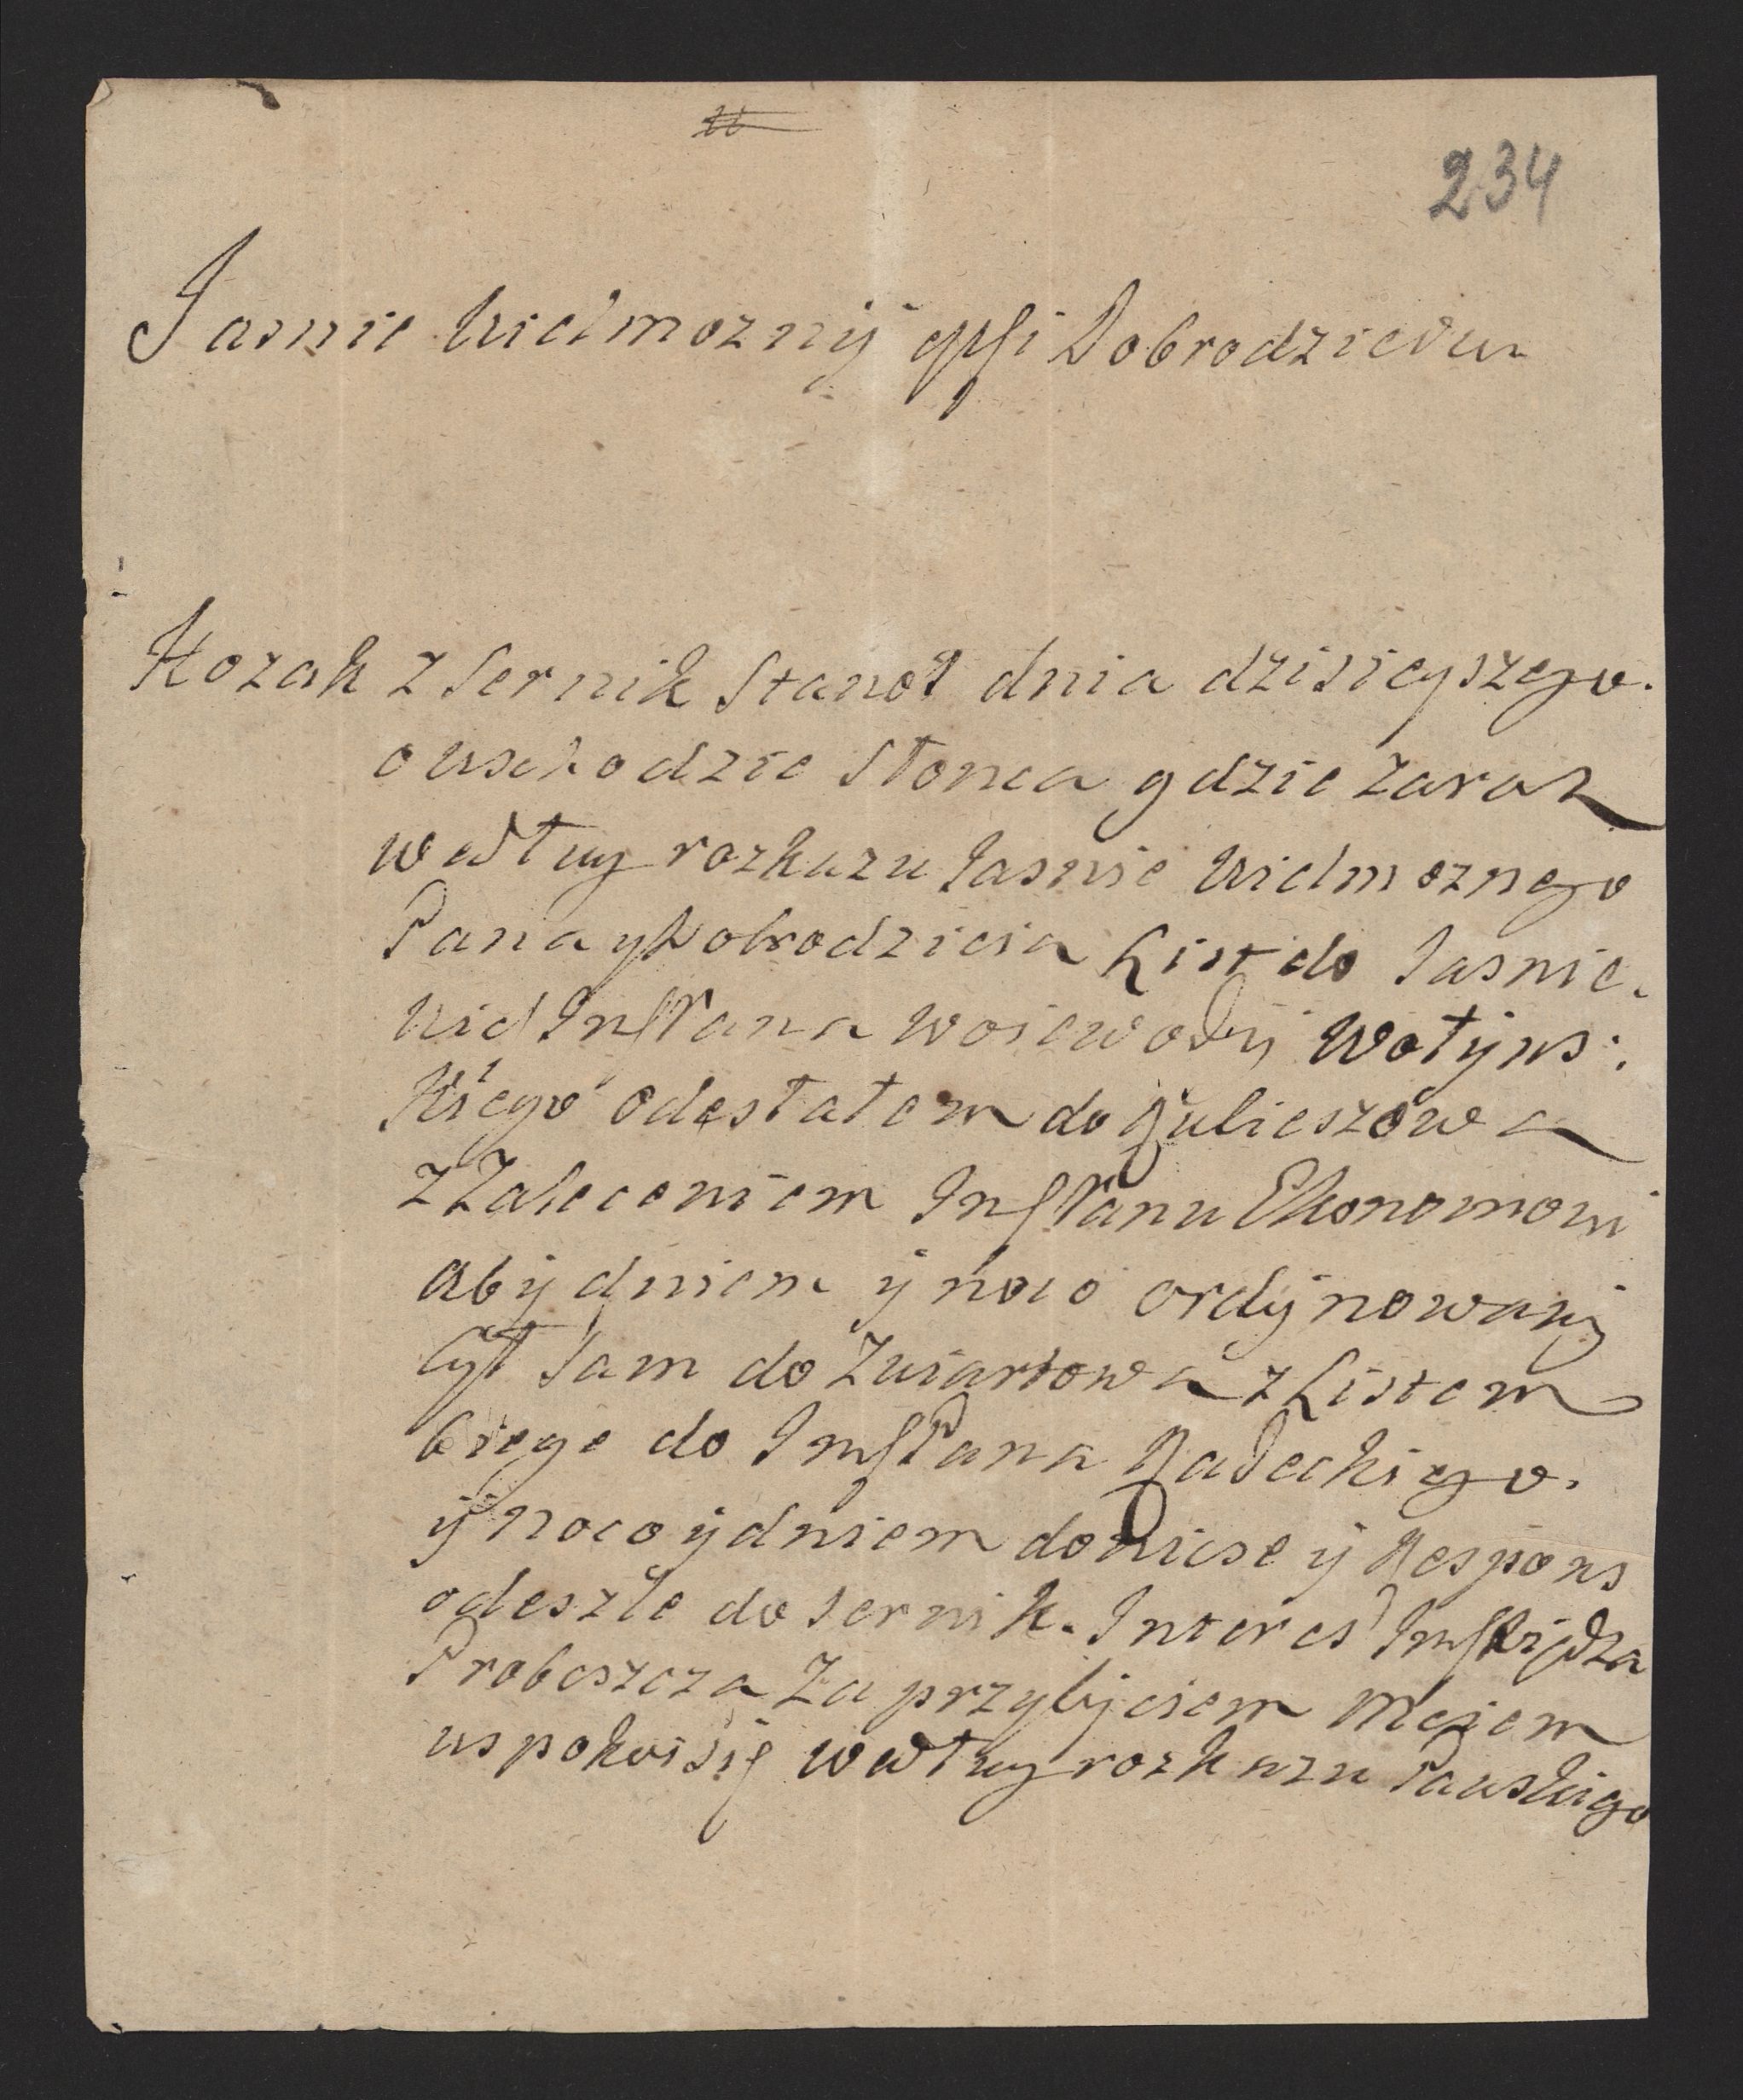 234
Jasnie Wielmozny Dobrodzieiu
Kozak z Sernik Stanoł dnia dzisieyszego.
o wschodzie Słonca gdzie zaraz
wedłuy rozkazu Jasnie Wielmoznego
Pana y Dobrodzieia List do Jasnie.
Wiel Jmsс Pana Woiewody Wołyns:
kiego odesłałem do Gulieszowa
z Zaleceniem Jmsс Panu Ekonomowi
aby dniem y noco ordynowany
był Sam do Zwiartowa z Listem
biego do Jmsс Pana Radeckiego.
y noco y dniem doniese y Respons
odeszle do Sernik. Interes Jmsс Xiędza
Proboszcza Za przybyciem Mojem
uspokoi się wedłuy rozkazu Pańskigo